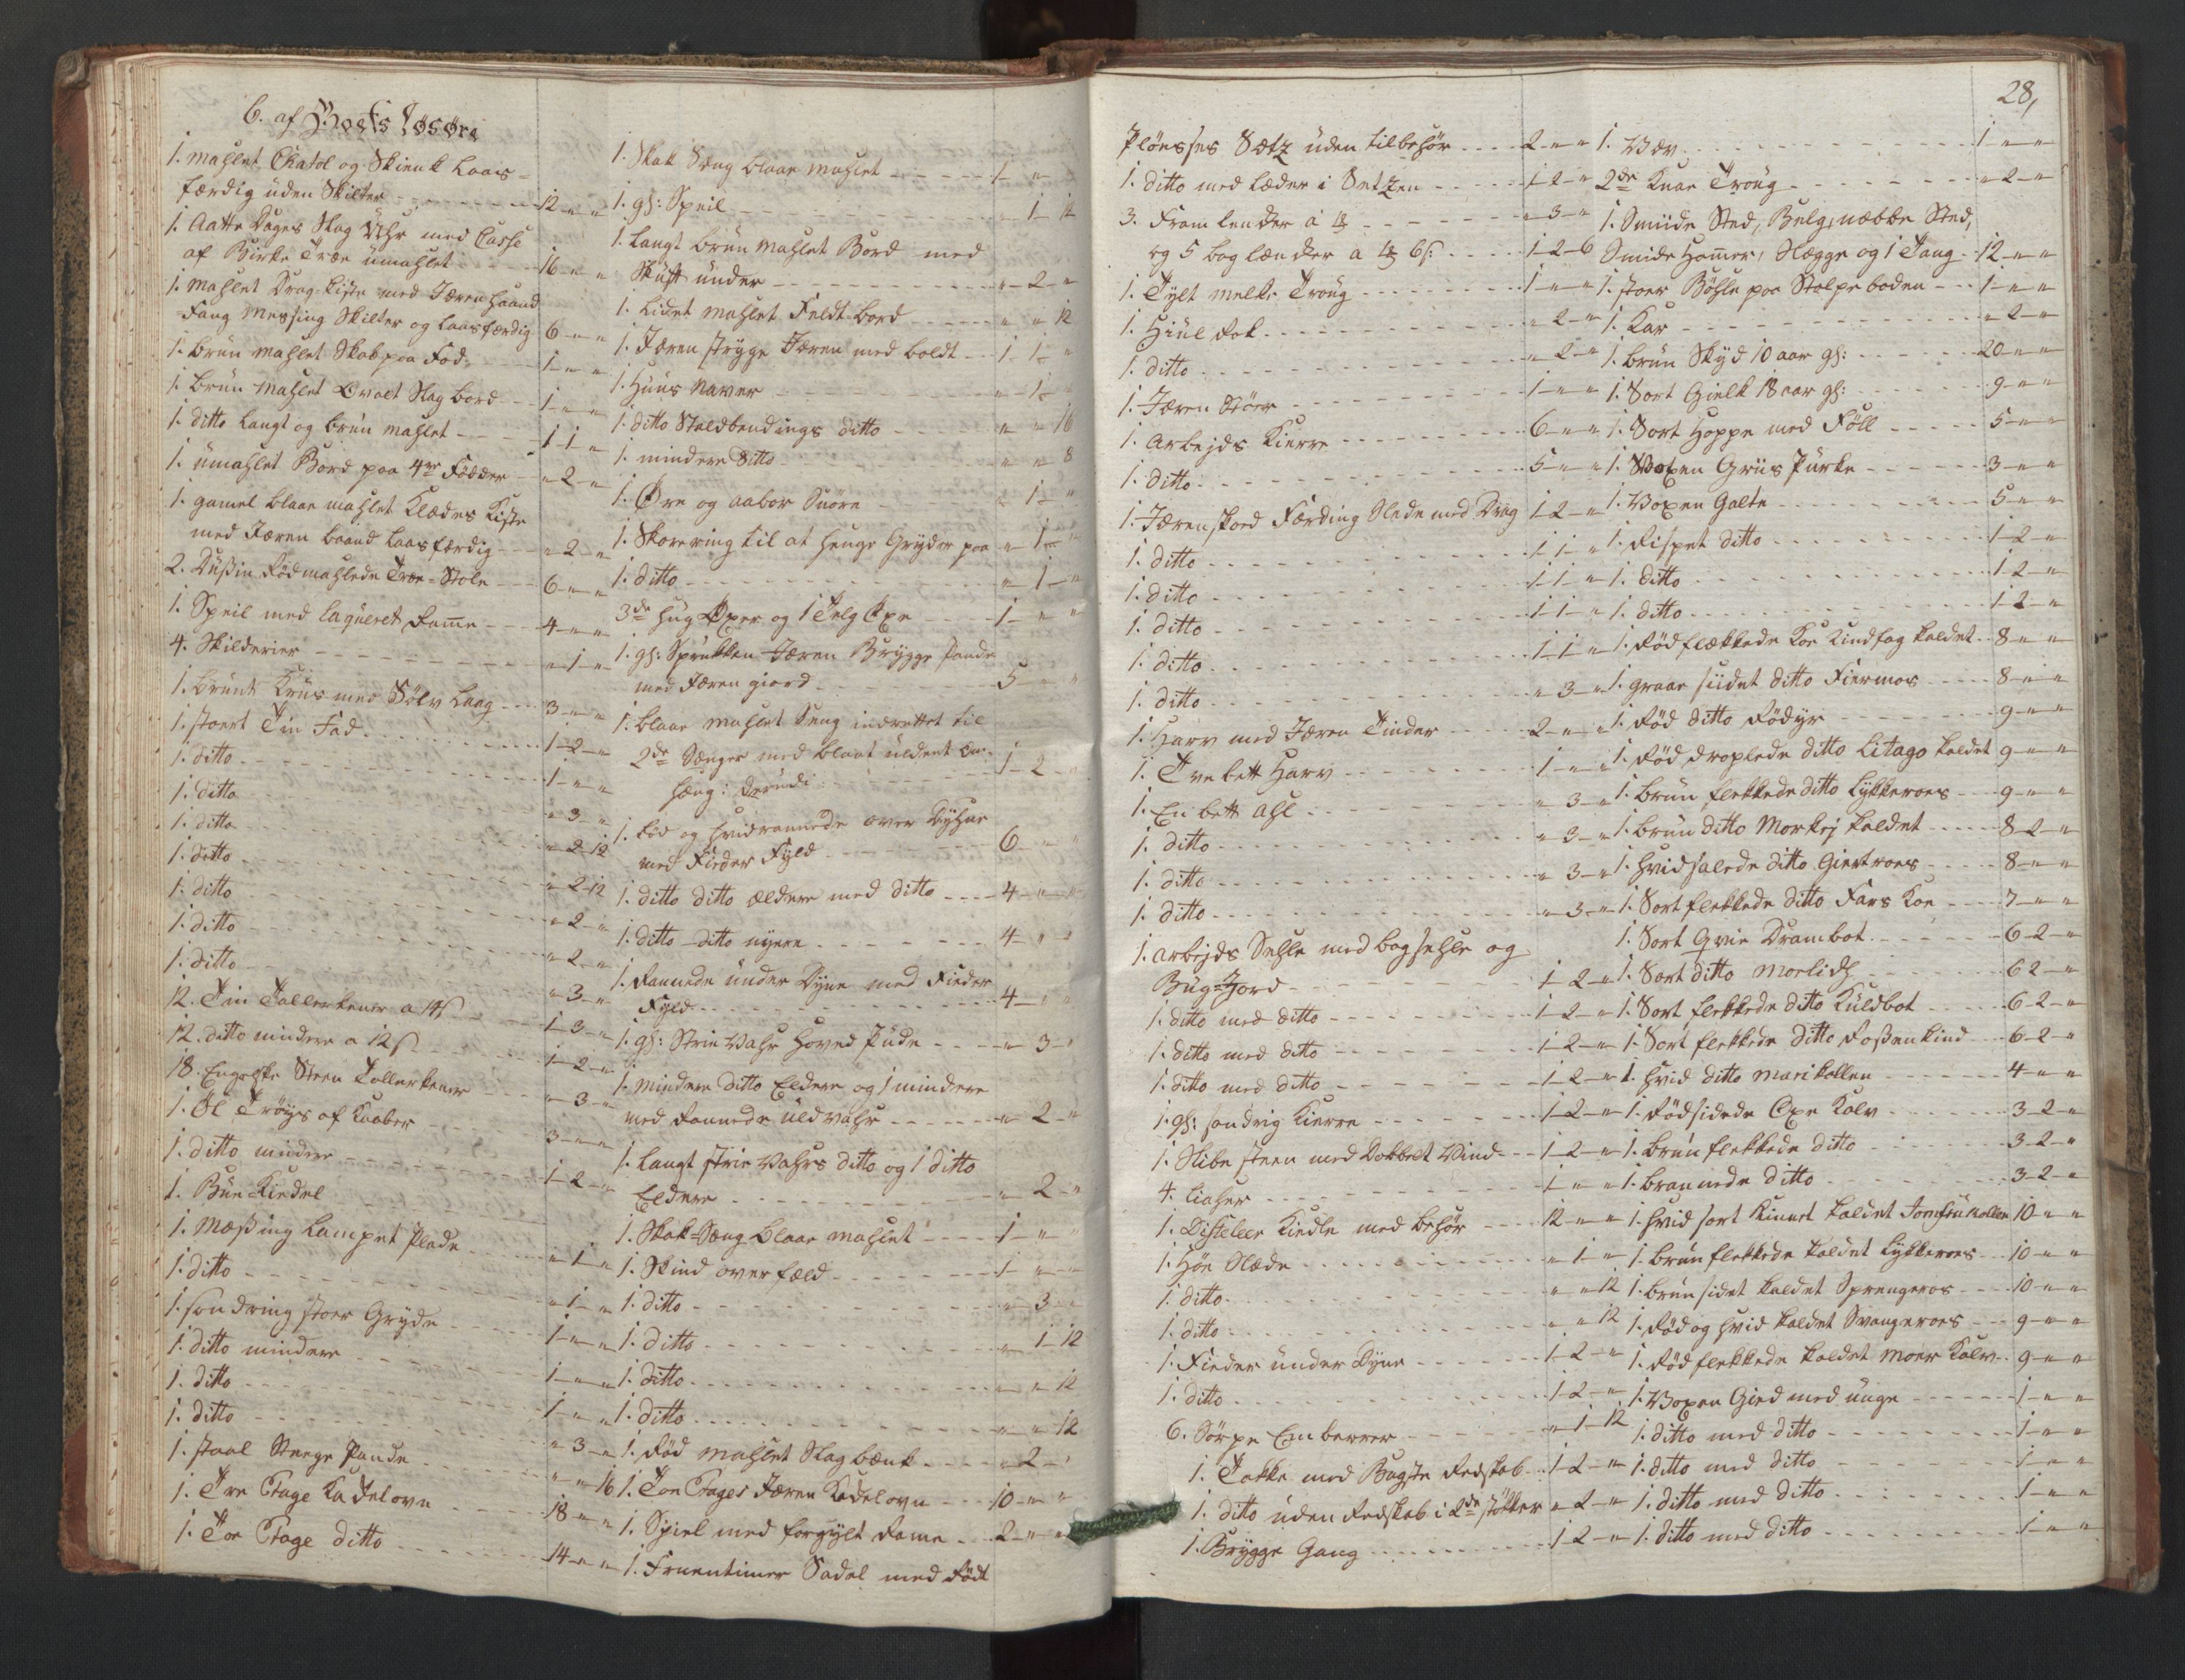 6. af Boets Løsøre
1. Mahlet Chatol og Skienk Laas-
færdig uden Skilter - - - 12 - " - "
1. Aatte Dages Slag Uhr med Casse
af Birke Træ umahlet - - - 16 - " - "
1. Mahlet Drag-Kiste med Jæren Haand
Fang Messing Skilter og Laasfærdig 6 - " - "
1. Brun Mahlet Skab paa Fod - - 1 - " - "
1. Brun Mahlet Ovalt Slag bord - - 1 - " - "
1. ditto Langt og brun mahlet - - - 1 - 1 - "
1. Umahlet Bord paa 4re Fødder - " - 2 - "
1. gamel blaae mahlet Klædes Kiste
med Jæren baand Laasfærdig - - " - 2 - "
2. Dußin Rød mahlede Træ-Stole - - 6 - " - "
1. Speil med laqueret Rame - - 4 - " - "
4. Skilderier - - - " - 1 - "
1. Brunt Kruus med Sølv Laag - - 3 - " - "
1. stoert Tin Fad - - - 1 - 2 - "
1. ditto - - - 1 - " - "
1. ditto - - - " - 3 - "
1. ditto - - - " - 2 - 12
1. ditto - - - " - 2 - 12
1. ditto - - - " - 2 - "
1. ditto - - - " - 2 - "
1. ditto - - - " - 3 - "
12. Tin Tallerkener a 14 ß - - 1 - 3 - "
12. ditto mindere a 12 ß - - 1 - 2 - "
18. Engelske Steen Tallerkener - - " - 3 - "
1. Øl Trøys af Kaaber - - 3 - " - "
1. ditto mindre - - - 1 - 2 - "
1. Bue-Kiedel
1. Mæßing Lampet Plade - - " - 1 - "
1. ditto - - - " - 1 - "
1. søndring stoer Gryde - - 1 - " - "
1. ditto mindere - - - 1 - " - "
1. ditto - - - 1 - " - "
1. ditto - - - " - 3 - "
1. staal Steege Pande - - " - " - 16
1. Tre Etage Kakelovn - - 18 - " - "
1. Toe Etage ditto - - - 14 - " - "
1. Skab Sæng blaae mahlet - - - 1 - "
1. gl: Speil - - - 1 - 12
1. Langt brun Mahlet Bord med
Skuff under - - - " - 2 - "
1. Lidet mahlet Feldt-bord - - " - " - 12
1. Jæren strygge Jæren med boldt - - 1 - 1 - "
1. Huus Naver - - - " - 1 - "
1. ditto Staldbendings ditto - - " - " - 16
1. mindere ditto - - - " - " - 8
1. Øre og aabor Snöre - - " - 1 - "
1. Skorering til at henge Gryder paa - " - 1 - "
1. ditto - - - " - 1 - "
3de Hug Øxer og 1 Telg Øxe - - 1 - " - "
1. gl: Sprukken Jæren Brygge Pande
med Jæren giord - - - 5 - " - "
1. blaae mahlet Seng indrettet til
2de Senger med blaat uldent om-
hæng: derudi - - - 1 - 2 - "
1. Rød og hvidrannede over Dyhne
med Fieder Fyld - - - 6 - " - "
1. ditto ditto ældere med ditto - - - 4 - " - "
1. ditto ditto nyere - - - 4 - " - "
1. Rannede under Dyne med Fieder
Fyld - - - 4 - " - "
1. gl: Strie Vahr Hoved Pude - - " - 3 - "
1. mindere ditto Eldere og 1 mindere
med Rannede uldvahr - - - " - 2 - "
1. Langt strie Vahrs ditto og 1 ditto
Eldere - - - " - 2 - "
1. Skab-Sæng blaae mahlet - - 1 - " - "
1. Skind over fæld - - - 1 - " - "
1. ditto - - - " - 3 - "
1. ditto - - - " - 1 - 12
1. ditto - - - " - " - 12
1. ditto - - - " - " - 12
1. Rød mahlet Slagbænk - - " - 2 - "
1. Toe Etages Jæren Kakelovn - - 10 - " - "
1. Speil med forgylt Rame - - 2 - " - "
1. Fruentimer Sadel med Rødt
28,
Pløesses Sætz uden tilbehør - - - 2 - " - "
1. ditto med læder i Setzen - - - 1 - 2 - "
3. Fram Lencker á 1 ort - - - " - 3 - "
og 5 bag læncker a 1 ort 6 ß: - - - 1 - 2 - 6
1. Tylt Melke Troug - - - 1 - " - "
1. Hiul Rok - - - " - 2 - "
1. ditto - - - " - 2 - "
1. Jæren Støer - - - 1 - " - "
1. Arbejds Kierre - - - 6 - " - "
1. ditto - - - 5 - " - "
1. Jærenskoed Færding Slede med Drag 1 - 2 - "
1. ditto - - - 1 - 1 - "
1. ditto - - - 1 - 1 - "
1. ditto - - - 1 - 1 - "
1. ditto - - - 1 - 1 - "
1. ditto - - - " - 3 - "
1. Harv med Jæren Tinder - - - 2 - " - "
1. Tvebett Harv - - - 1 - " - "
1. En bett ahl - - - " - 3 - "
1. ditto - - - " - 3 - "
1. ditto - - - " - 3 - "
1. ditto - - - " - 3 - "
1. arbejds Sehle med bagsehle og
Bug-Jord - - - 1 - 2 - "
1. ditto med ditto - - - 1 - 2 - "
1. ditto med ditto - - - 1 - 2 - "
1. ditto med ditto - - - 1 - 2 - "
1. gl: søndrig Kierre - - - 1 - 2 - "
1. Slibe steen med Dobbelt Vind - - 1 - 2 - "
4. Liaher - - - 1 - " - "
1. Disteleer Kiedle med behør - - - 12 - " - "
1. Høe Slæde - - - " - 1 - "
1. ditto - - - " - " - 12
1. ditto - - - " - " - 12
1. Fieder under Dyne - - - 1 - 2 - "
1. ditto - - - 1 - 2 - "
6. Sørpe Embarrer - - - " - 1 - 12
1. Takke med Bagste Redskab - - 1 - 2 - "
1. ditto uden Redskab i 2de støkker " - 2 - "
1. Brygge Gang - - - 1 - 2 - "
1. Væv - - - 1 - " - "
2de Knae Troug - - - " - 2 - "
1. Smidde Sted, Belg, næbbe Sted,
Smide Hamer, Slægge og 1 Tang - 12 - " - "
1. stoer Böhle paa Stolpeboden - - 1 - " - "
1. Kar - - - " - 2 - "
1. brun Skyd 10 aar gl: - - - 20 - " - "
1. Sort Gielk 18 aar gl: - - - 9 - " - "
1. Sort Hoppe med Föll - - - 5 - " - "
1. Voxen Griis Purke - - - 3 - " - "
1. Voxen Galte - - - 5 - " - "
1. Rispet ditto - - - 1 - 2 - "
1. ditto - - - 1 - 2 - "
1. ditto - - - 1 - 2 - "
1. Rødflækkede Koe Kindfag kaldet - - 8 - " - "
1. graae siidet ditto Fiermos - - - 8 - " - "
1. Rød ditto Rødyr - - - 9 - " - "
1. Rød droplede ditto Litago kaldet 9 - " - "
1. brun flekkede ditto Lykkeroes - - 9 - " - "
1. brun ditto Morkej kaldet - - - 8 - 2 - "
1. hvidsalede ditto Giertroes - - - 8 - " - "
1. Sort flekkede ditto Fars Koe - - - 7 - " - "
1. Sort Qvie Drambot - - - 6 - 2 - "
1. Sort ditto Morlidh - - - 6 2 - "
1. Sort flekkede ditto Kuldbot - - - 6 - 2 - "
1. Sort flekkede ditto Roßenkind - - 6 - 2 - "
1. hvid ditto Marikollen - - - 4 - " - "
1. Rødsidede Oxe Kalv - - - 3 - 2 - "
1. brun flekkede ditto - - - 3 - 2 - "
1. brannede ditto - - - 3 - 2 - "
1. hvid sort Kinnet kaldet Jomfrukollen 10 - " - "
1. brun flekkede kaldet Lykkeroes - - 10 - " - "
1. brun sidet kaldet Sprengeros - - 10 - " - "
1. Rød og hvid kaldet Svangeroes - - 9 - " - "
1. Rød flekkede kaldet Moer Kalv - - 9 - " - "
1. Voxen Gied med unge - - - 1 - " - "
1. ditto med ditto - - - 1 - " - "
1. ditto med ditto - - - 1 - " - "
1. ditto med ditto - - - 1 - " - "
1. ditto med ditto - - - 1 - " - "